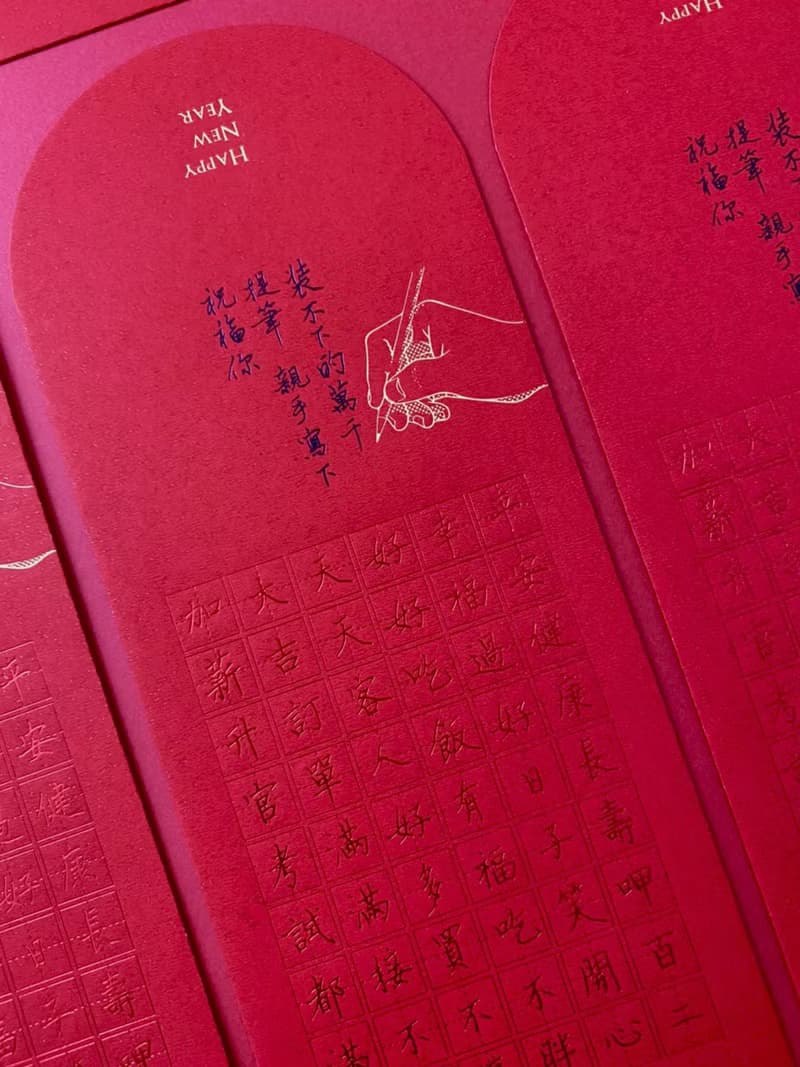 HAPPY
NEW
YEAR
裝不下的萬千
提筆 親手寫下
祝福你
平安健康長壽呷百二
幸福過好日子笑開心
好好吃飯有福吃不胖
天天客人好多買不
大吉訂單滿滿接不
加薪升官考試都滿
HAPPY
裝不
提筆 親手寫
祝福你
大吉
加薪升官考
平安健康長壽呷
好日子